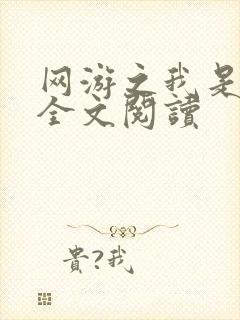 网游之我是
全文閱讀
貴?我